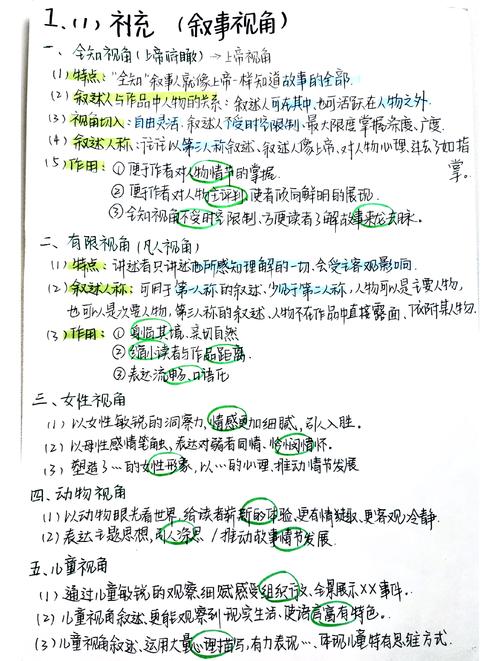 1.(1) 补充 (叙事视角)
一、全知视角(上帝俯瞰) → 上帝视角
(1) 特点: "全知"叙事人就像上帝一样知道故事的全部.
(2) 叙述人与作品中人物的关系: 叙述人可在其中,也可活跃在人物之外.
(3) 视角切入: 自由灵活. 叙述人不受时空限制、最大限度掌握深度、广度.
(4) 叙述人称: 往往以第三人称叙述、叙述人像上帝、对人物心理、过去了如指
掌。
(5) 作用: ① 便于作者对人物情节的掌握.
② 便于作者对人物全评判,使者欣向鲜明的展现.
③ 全知视角不受时空限制、方便读者了解故事来龙去脉。
二、有限视角(凡人视角)
(1) 特点: 讲述者只讲述他所感知理解的一切,会受主客观影响.
(2) 叙述人称: 可用于第一人称的叙述、少见于第二人称, 人物可以是主要人物,
也可以是次要人物, 第三人称的叙述、人物不在作品中直接露面、依附某人物.
(3) 作用: ① 身临其境、亲切自然
② 缩小读者与作品距离.
③ 表达流畅、口语化
三、女性视角
(1) 以女性敏锐的洞察力,情感更加细腻,引人入胜。
(2) 以母性感情笔触、表达对弱者同情、怜悯情怀。
(3) 塑造了…的女性形象,以…的心理.推动情节发展
四、动物视角
(1) 以动物眼光看世界、给读者崭新的体验、更有情趣、更客观冷静.
(2) 表达主题思想,引人深思 / 推动故事情节发展.
五、儿童视角
(1) 通过儿童敏锐的观察.细腻感受组织行文、全景展示XX事件.
(2) 儿童视角叙述、更能观察到现实生活、使语言富有特色。
(3) 儿童视角叙述、运用大量心理描写,有力表现…、体现儿童特有思维方式.